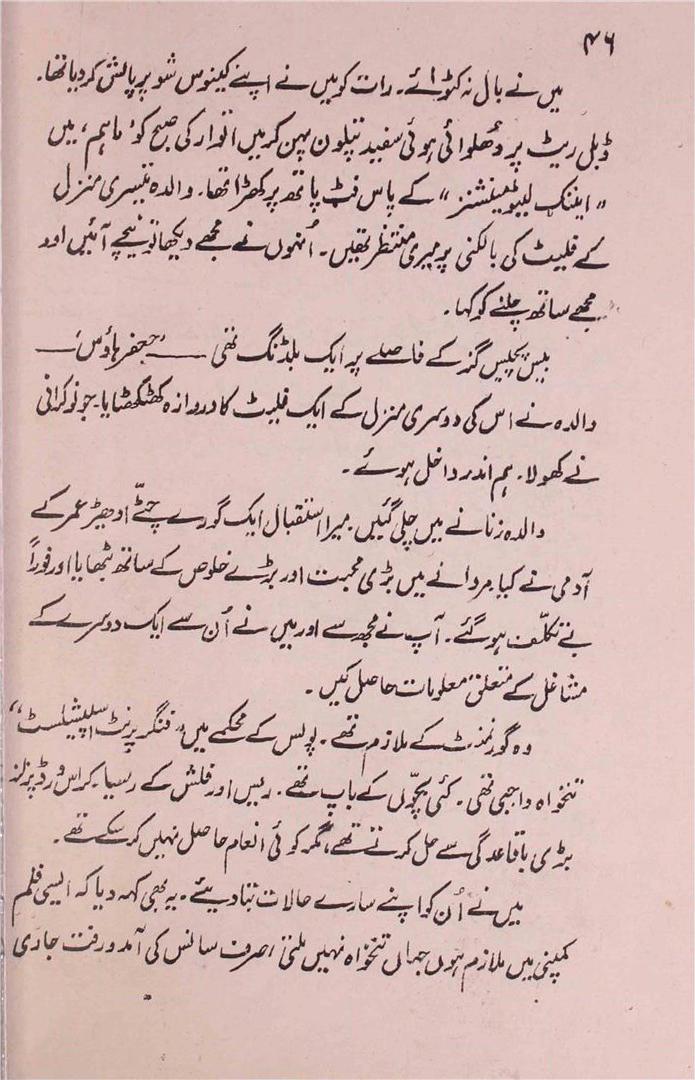 ۴۶
میں نے بال نہ کٹوائے۔ رات کو میں نے اپنے کینوس شو پر پالش کر دیا تھا۔
ڈبل ریٹ پر دُھلوائی ہوئی سفید پتلون پہن کر میں اتوار کی صبح کو 'ماہم' میں
"ایننگ لیوٹمینشنز" کے پاس فٹ پاتھ پر کھڑا تھا۔ والدہ تیسری منزل
کے فلیٹ کی بالکنی پر میری منتظر تھیں۔ اُنہوں نے مجھے دیکھا تو نیچے آئیں اور
مجھے ساتھ چلنے کو کہا۔
بیس پچیس گز کے فاصلے پر ایک بلڈنگ تھی ـــــ 'جعفر ہاؤس' ـــــ
والدہ نے اس کی دوسری منزل کے ایک فلیٹ کا دروازہ کھٹکھٹایا۔ جو نوکرانی
نے کھولا۔ ہم اندر داخل ہوئے۔
والدہ زنانے میں چلی گئیں۔ میرا استقبال ایک گورے چٹّے ادھیڑ عمر کے
آدمی نے کیا۔ مردانے میں بڑی محبت اور بڑے خلوص کے ساتھ بٹھایا اور فوراً
بے تکلّف ہو گئے۔ آپ نے مجھ سے اور میں نے اُن سے ایک دوسرے کے
مشاغل کے متعلق معلومات حاصل کیں۔
وہ گورنمنٹ کے ملازم تھے۔ پولس کے محکمے میں "فنگر پرنٹ اسپیشلسٹ"
تنخواہ واجبی تھی۔ کئی بچّوں کے باپ تھے۔ ریس اور فلش کے رسیا۔ کراس ورڈ پزلز
بڑی باقاعدگی سے حل کرتے تھے، مگر کوئی انعام حاصل نہیں کر سکے تھے۔
میں نے اُن کو اپنے سارے حالات بتا دیئے۔ یہ بھی کہہ دیا کہ ایسی فلم
کمپنی میں ملازم ہوں جہاں تنخواہ نہیں ملتی، صرف سانس کی آمد و رفت جاری